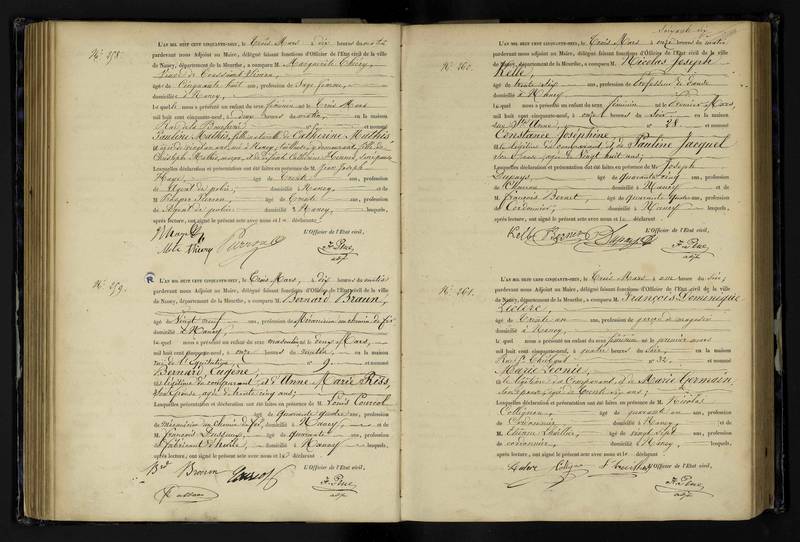 N.° 258.
L'AN MIL HUIT CENT CINQUANTE-SIX, le Trois Mars à dix heures du matin
pardevant nous Adjoint au Maire, délégué faisant fonctions d'Officier de l'Etat civil de la ville
de Nancy, département de la Meurthe, a comparu M. Marguerite Thiéry,
Veuve de
âgé de Cinquante huit ans, profession de Sage femme,
domicilié à Nancy,
Lequel nous a présenté un enfant du sexe féminin né le Trois Mars
mil huit cent cinquante-six, à heures du matin, en la maison
Rue de la et nommé
Pauline Mathis, fille naturelle de Catherine Mathis
âgée de vingt ans, né à Nancy, y demeurant, fille de
Christophe Mathis, et de défunt Catherine
Lesquelles déclaration et présentation ont été faites en présence de M. Jean Joseph
âgé de Trente ans, profession
de Agent de police, domicilié à Nancy et de
M. Prosper âgé de Trente ans, profession
de Agent de police, domicilié à Nancy, lesquels,
après lecture, ont signé le présent acte avec nous et le déclarant
L'Officier de l'Etat civil,
Thiery
adj.
N.° 259.
L'AN MIL HUIT CENT CINQUANTE-SIX, le Trois Mars, à dix heures du matin
pardevant nous Adjoint au Maire, délégué faisant fonctions d'Officier de l'Etat civil de la ville
de Nancy, département de la Meurthe, a comparu M. Bernard Braun,
âgé de Vingt neuf ans, profession de Mécanicien au chemin de fer
domicilié à Nancy,
Lequel nous a présenté un enfant du sexe masculin né le deux Mars,
mil huit cent cinquante-six, à onze heures du matin, en la maison
rue de l'Equitation, n° 9, et nommé
Bernard Eugène,
légitime du comparant et d'Anne Marie Ross,
son épouse, âgée de trente cinq ans;
Lesquelles présentation et déclaration ont été faites en présence de M. Louis Courcol
âgé de quarante quatre ans, profession
de mécanicien au chemin de fer, domicilié à Nancy, et de
M. François âgé de quarante ans, profession
de Fabricant domicilié à Nancy lesquels,
après lecture, ont signé le présent acte avec nous et le déclarant
L'Officier de l'Etat civil,
Braun
adj.
Soixante dix
N.° 260.
L'AN MIL HUIT CENT CINQUANTE-SIX, le Trois Mars à onze heures du matin
pardevant nous Adjoint au Maire, délégué faisant fonctions d'Officier de l'Etat civil de la ville
de Nancy, département de la Meurthe, a comparu M. Nicolas Joseph
Kelle,
âgé de trente six ans, profession de Professeur de Danse
domicilié à Nancy
Lequel nous a présenté un enfant du sexe féminin né le Premier Mars,
mil huit cent cinquante-six, à onze heures du soir en la maison
rue Ste Anne, n° 28 et nommé
Constance Joséphine,
légitime du comparant et de Pauline Jacquel
son Epouse âgée de Vingt huit ans;
Lesquelles déclaration et présentation ont été faites en présence de M. Joseph
Dupays, âgé de quarante cinq ans, profession
de domicilié à Nancy et de
M. François Bernet, âgé de quarante quatre ans, profession
de Cordonnier, domicilié à Nancy lesquels,
après lecture, ont signé le présent acte avec nous et le déclarant
L'Officier de l'Etat civil,
Kelle Bernet Dupays
adj.
N.° 261.
L'AN MIL HUIT CENT CINQUANTE-SIX, le Trois Mars à une heures du soir,
pardevant nous Adjoint au Maire, délégué faisant fonctions d'Officier de l'Etat civil de la ville
de Nancy, département de la Meurthe, a comparu M. François Dominique
Leclère,
âgé de trente un ans, profession de garçon de magasin
domicilié à Nancy,
Lequel nous a présenté un enfant du sexe féminin né le premier mars
mil huit cent cinquante-six, à quatre heures du soir, en la maison
Rue St n° 32, et nommé
Marie Léonie,
légitime du Comparant, et de Marie Germain,
son épouse, âgée de trente six ans;
Lesquelles déclaration et présentation ont été faites en présence de M. Nicolas
Collignon, âgé de quarante un ans, profession
de Cordonnier, domicilié à Nancy, et de
M. Etienne âgé de vingt sept ans, profession
de cordonnier, domicilié à Nancy, lesquels,
après lecture, ont signé le présent acte avec nous et le déclarant
L'Officier de l'Etat civil,
adj.